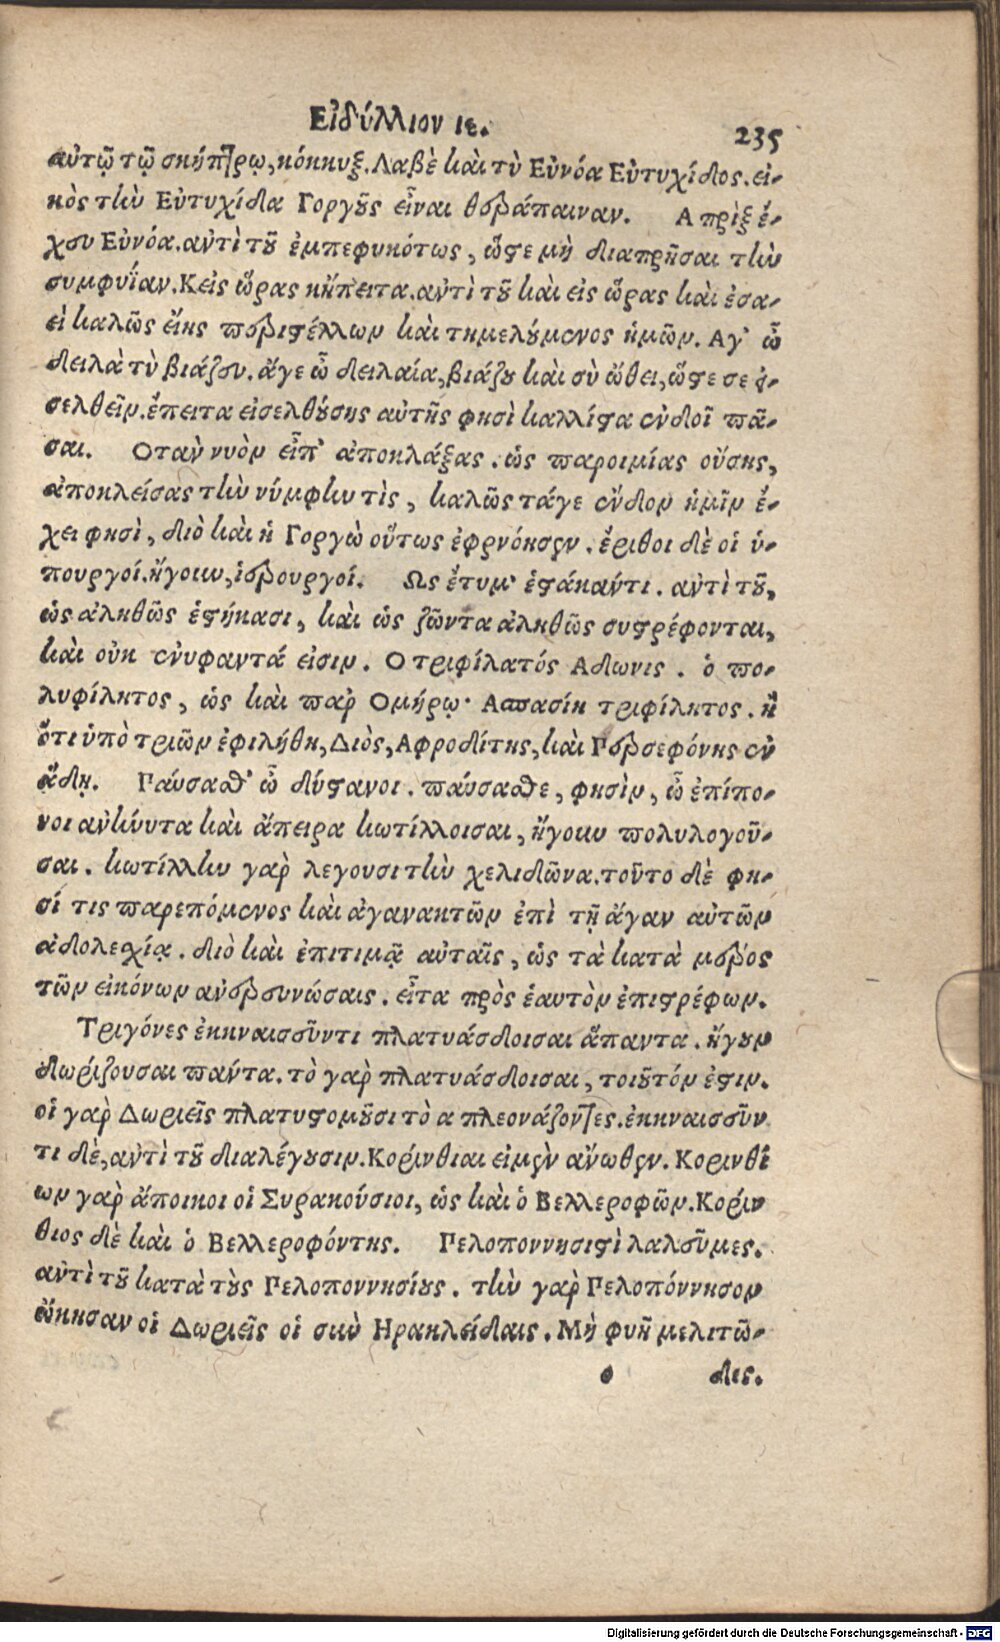 Εἰδύλλιον ιε.
235
αὐτῷ τῷ σκήπτρῳ, κόκκυξ. Λαβὲ καὶ τὺ Εὐνόα Εὐτυχίδος. εἰ-
κὸς τὴν Εὐτυχίδα Γοργοῦς εἶναι θεράπαιναν. Απρὶξ ἔ-
χευ Εὐνόα. αὐτὶ τοῦ ἐμπεφυκότως, ὥστε μὴ διαπρῆσαι τὴν
συμφυΐαν. Κεἰς ὥρας κἤπειτα. αὐτὶ τοῦ καὶ εἰς ὥρας καὶ ἐσα-
εὶ καλῶς εἴης περιστέλλων καὶ τημελούμενος ἡμῶν. Αγ' ὦ
δειλὰ τὺ βιάζευ. ἄγε ὦ δειλαία, βιάζου καὶ σὺ ὤθει, ὥστε σε ἐ-
σελθεῖν. ἔπειτα εἰσελθούσης αὐτῆς φησὶ καλλίστα ἐνδοῖ πᾶ-
σαι. Οταὺ νυὸν εἶπ' ἀποκλάξας. ὡς παροιμίας οὔσης,
ἀποκλείσας τὴν νύμφην τὶς, καλῶς τάγε ἔνδον ἡμῖν ἔ-
χει φησὶ, διὸ καὶ ἡ Γοργὼ οὕτως ἐφρνόησεν. ἔριθοι δὲ οἱ ὑ-
πουργοί. ἤγουν, ἐερουργοί. Ως ἔτυμ' ἑστάκαντι. αὐτὶ τοῦ,
ὡς ἀληθῶς ἑστήκασι, καὶ ὡς ζῶντα ἀληθῶς συστρέφονται,
καὶ οὐκ ἐνυφαντά εἰσιν. Ο τριφίλατός Αδωνις. ὁ πο-
λυφίλητος, ὡς καὶ παρ Ομήρῳ· Ασπασίη τριφίλητος. ἢ
ὅτι ὑπὸ τριῶν ἐφιλήθη, Διὸς, Αφροδίτης, καὶ Περσεφόνης ἐν
ᾅδῃ. Παύσαθ' ὦ δύστανοι. παύσασθε, φησὶν, ὦ ἐπίπο-
νοι ἀνήνυτα καὶ ἄπειρα κωτίλλοισαι, ἤγουν πολυλογοῦ-
σαι. κωτίλλην γαρ λεγουσι τὴν χελιδῶνα. τοῦτο δὲ φη-
σί τις παρεπόμενος καὶ ἀγανακτῶν ἐπὶ τῇ ἄγαν αὐτῶν
ἀδολεσχίᾳ. διὸ καὶ ἐπιτιμᾷ αὐταῖς, ὡς τὰ κατὰ μέρος
τῶν εἰκόνων ἀνερευνώσαις. εἶτα πρὸς ἑαυτὸν ἐπιστρέφων.
Τριγόνες ἐκκναισεῦντι πλατυάσδοισαι ἅπαντα. ἤγουν
δωρίζουσαι πάντα. τὸ γαρ πλατυάσδοισαι, τοιοῦτόν ἐστιν.
οἱ γαρ Δωριεῖς πλατυστομοῦσι τὸ α πλεονάζοντες. ἐκκναισεῦν
τι δὲ, αὐτὶ τοῦ διαλέγουσιν. Κορίνθιαι εἰμὲν ἄνωθεν. Κορινθί
ων γαρ ἄποικοι οἱ Συρακούσιοι, ὡς καὶ ὁ Βελλεροφῶν. Κορίν
θιος δὲ καὶ ὁ Βελλεροφόντης. Πελοποννησιστὶ λαλεῦμες.
αὐτὶ τοῦ κατὰ τοὺς Πελοποννησίους. τὴν γαρ Πελοπόννησον
ᾤκησαν οἱ Δωριεῖς οἱ σὺν Ηρακλείδαις. Μὴ φυῆ μελιτῶ-
ο
δες.
Digitalisierung gefördert durch die Deutsche Forschungsgemeinschaft - DFG